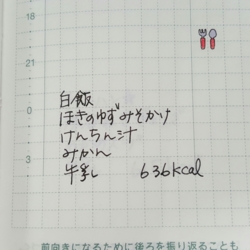 18
21
0
3
6
白飯
ほきのゆずみそかけ
けんちん汁
みかん
牛乳 636kcal
前向きになるために後ろを振り返ることも